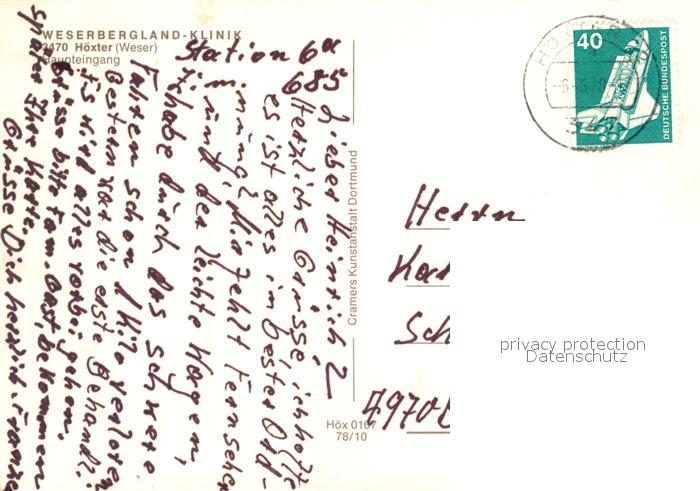 WESERBERGLAND-KLINIK
3470 Höxter (Weser)
Haupteingang
Station 6a
685
Lieber Heinrich!
Herzliche Grüsse, ich hoffe
es ist alles in bester Ord-
nung! Mir fehlt Fernsehen
und der leichte Magen,
ich habe durch das schwere
Fasten schon 1 Kilo verloren
Gestern war die erste Behandl.
Es wird alles vorbei gehen.
Grüsse bitte Fam. Gast, bekommen
später Ihre Karte.
Grüsse Dich herzlich
Cramers Kunstanstalt Dortmund
Höx 0107
78/10
40
DEUTSCHE BUNDESPOST
Herrn
Ka
Sch
privacy protection
Datenschutz
7970